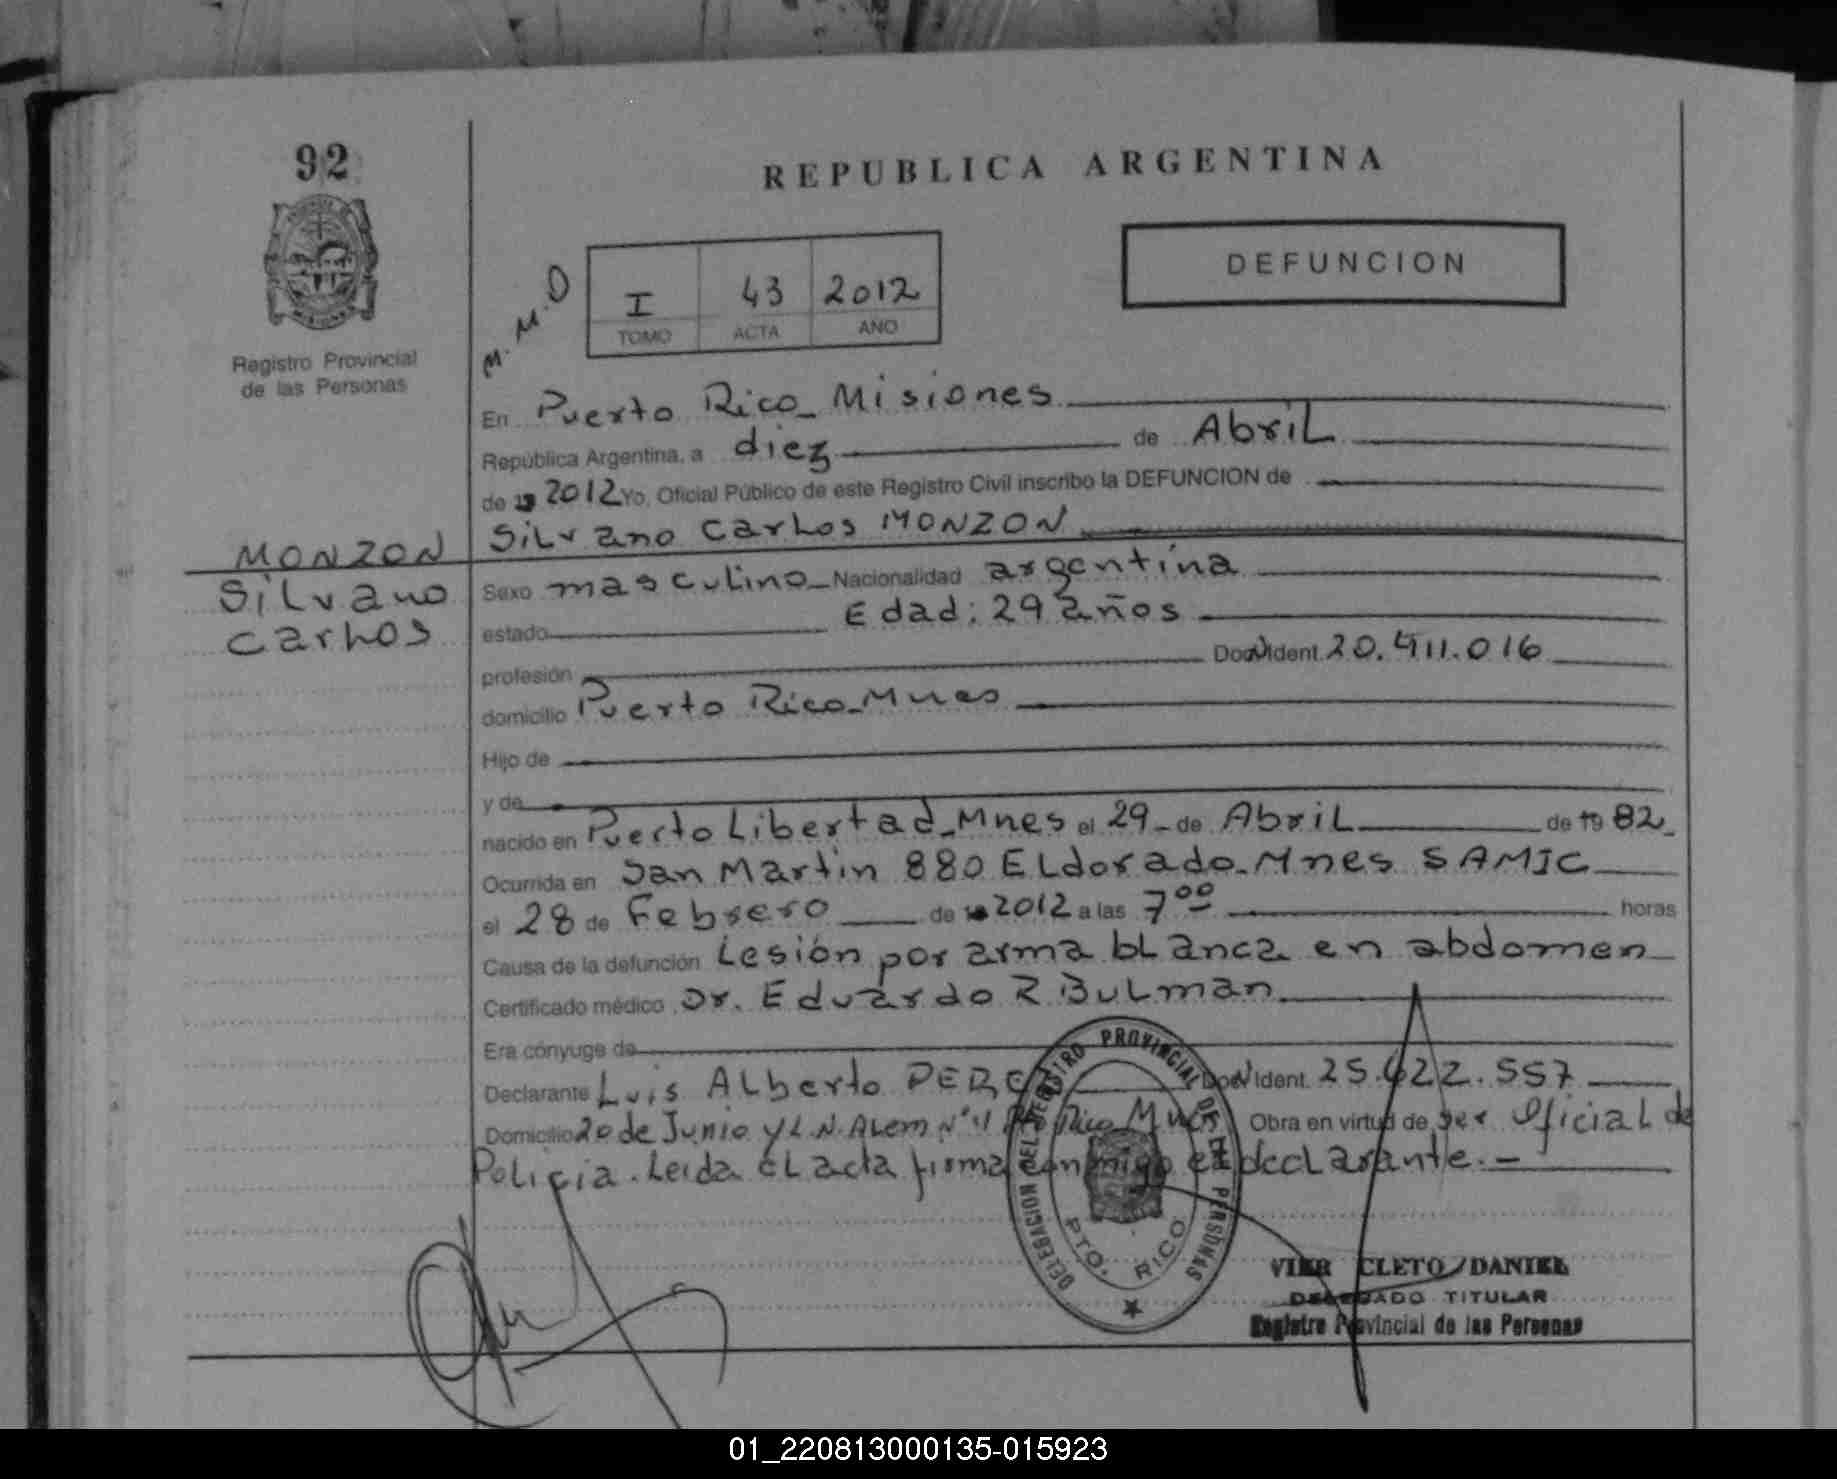 92
REPUBLICA ARGENTINA
DEFUNCION
M.M.O
I 43 2012
TOMO ACTA AÑO
Registro Provincial
de las Personas
En Puerto Rico_ Misiones
República Argentina, a diez de Abril
de 2012 Yo, Oficial Público de este Registro Civil inscribo la DEFUNCION de
Silvano Carlos MONZON
MONZON
Silvano
Carlos
Sexo masculino_ Nacionalidad argentina
estado Edad: 29 años
profesión Doc Ident. 20.911.016
domicilio Puerto Rico_Mnes
Hijo de
y de
nacido en Puerto Libertad_Mnes el 29_ de Abril de 19 82_
Ocurrida en San Martin 880 Eldorado_Mnes SAMIC
el 28 de Febrero de 2012 a las 7⁰⁰ horas
Causa de la defunción Lesión por arma blanca en abdomen
Certificado médico Dr. Eduardo R Bulman
Era cónyuge de
Declarante Luis Alberto Ident. 25.622.557
Domicilio 20 de Junio y L.N. Alem Rico Mnes Obra en virtud de ser Oficial de
Policia. Leida el acta firma conmigo el declarante.-
DELEGACION DEL REGISTRO PROVINCIAL DE LAS PERSONAS
PTO. RICO
VIER CLETO DANIEL
DELEGADO TITULAR
Registro Provincial de las Personas
01_220813000135-015923